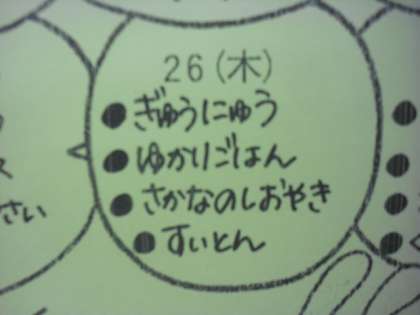 26(木)
●ぎゅうにゅう
●ゆかりごはん
●さかなのしおやき
●すいとん
さい